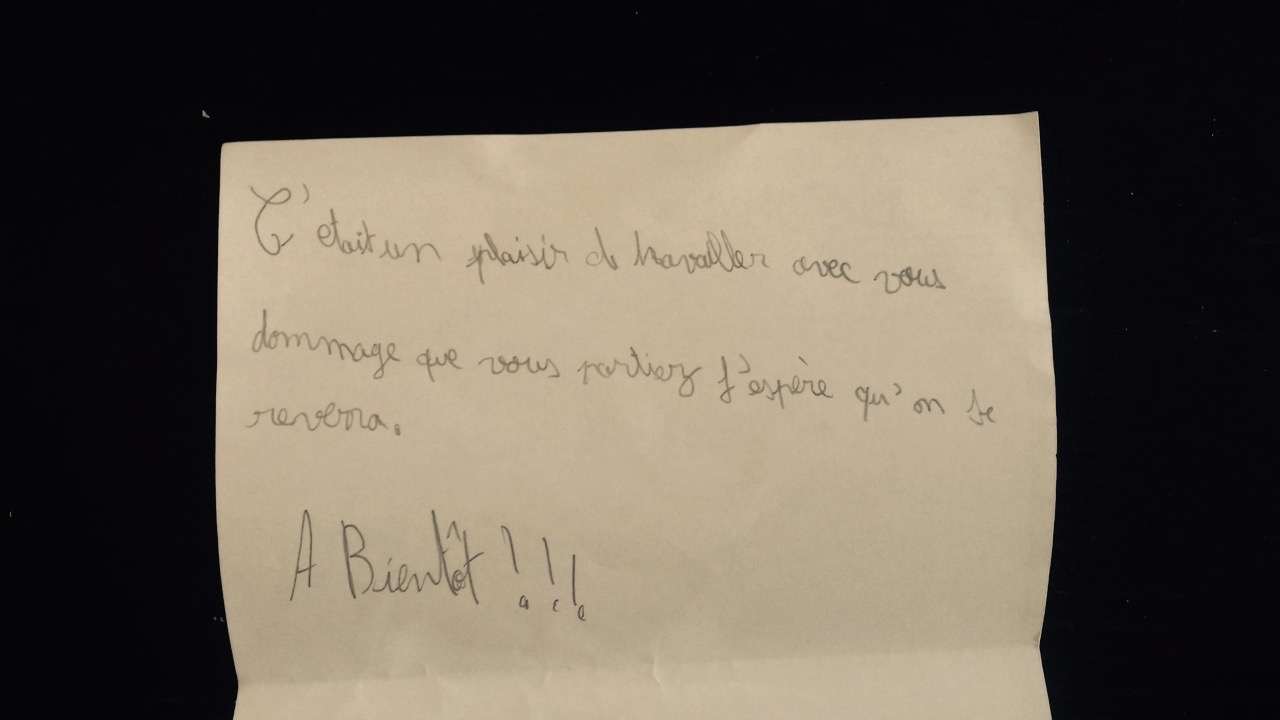 C'etait un plaisir de travailler avec vous
dommage que vous partiez j'espère qu'on se
reverra.
A Bientôt !!!